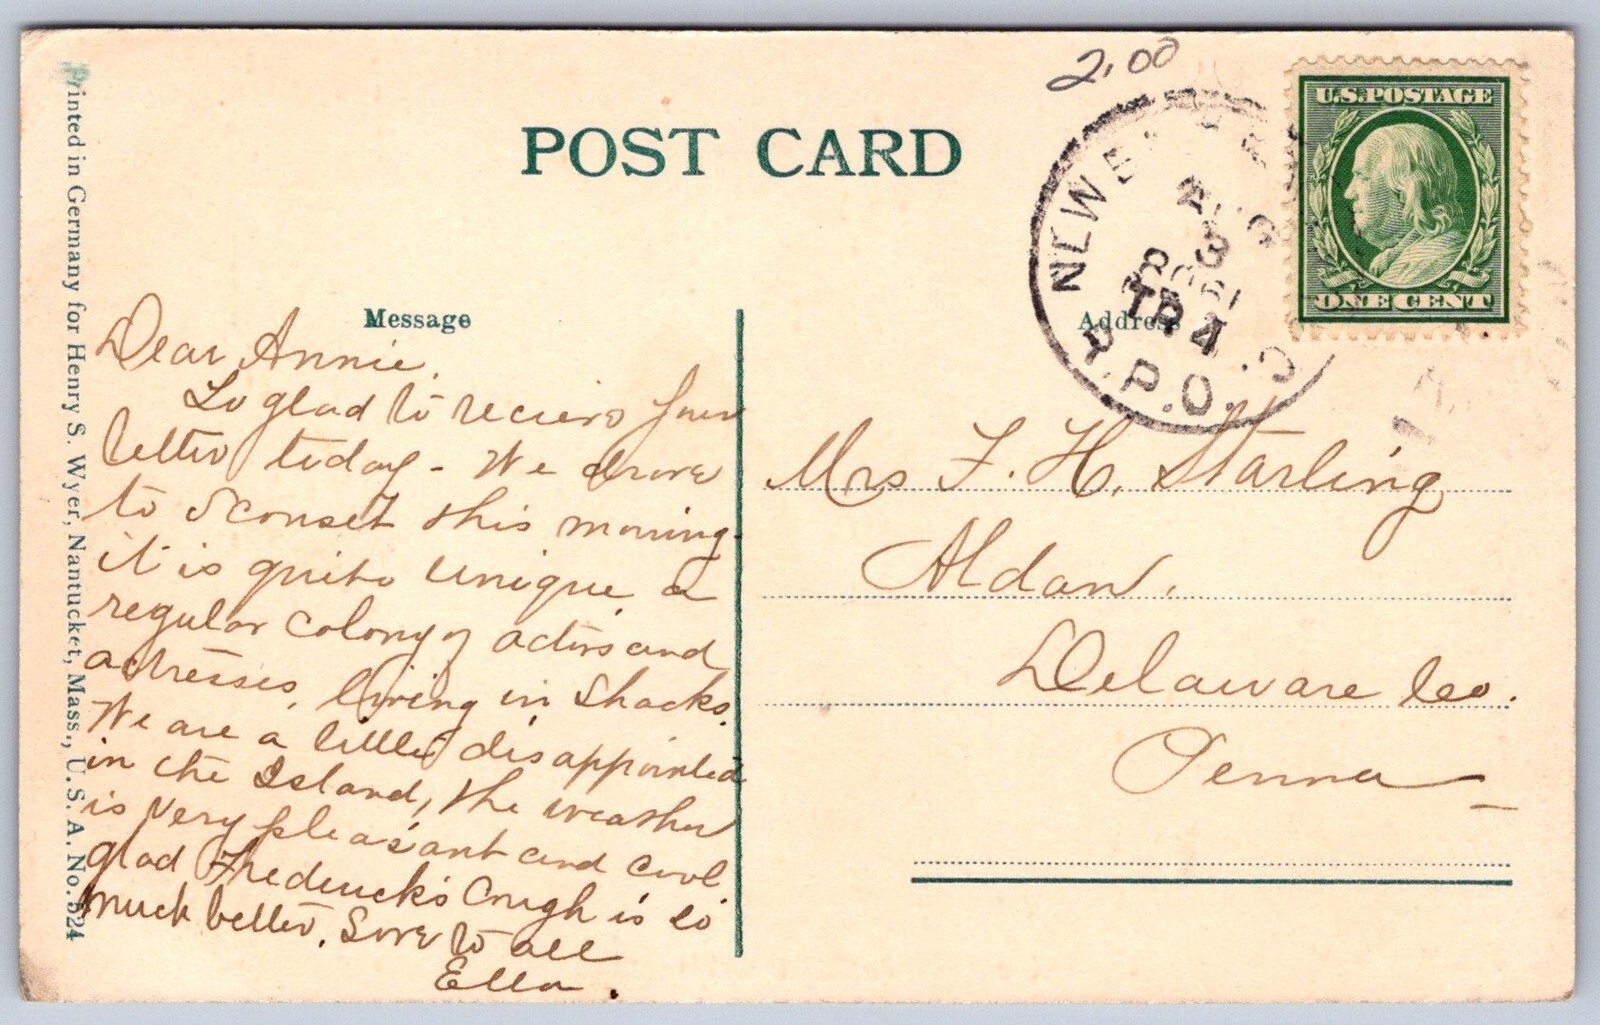 2.00
U.S. POSTAGE
ONE CENT
POST CARD
NEW BE
AUG
3
TR 4
R.P.O.
Message
Address
Dear Annie,
So glad to recieve your
letter today - We drove
to Sconset this morning.
it is quite unique a
regular colony of actors and
actresses, living in shacks.
We are a little disappointed
in the Island, the weather
is very pleasant and cool
glad Frederick's cough is so
much better. Love to all
Ella.
Mrs F. H. Starling
Aldan.
Delaware Co.
Penna
Printed in Germany for Henry S. Wyer, Nantucket, Mass., U. S. A. No. 524